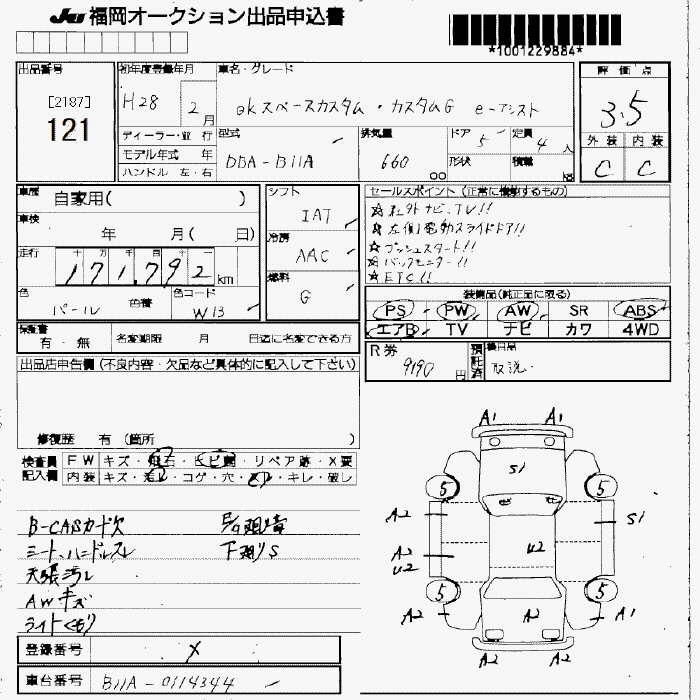 JU 福岡オークション出品申込書
*1001229884*
出品番号
[2187]
121
初年度登録年月
H28 2月
車名・グレード
ekスペースカスタム・カスタムG e-アシスト
評価点
3.5
外装 内装
C C
ディーラー・並行
モデル年式 年
ハンドル 左・右
型式
DBA-B11A
排気量
660 cc
ドア 5
形状
定員 4人
積載 kg
車歴 自家用( )
車検 年 月( 日)
走行 171,792 km
色 パール
色替
色コード W13
シフト
IAT
冷房
AAC
燃料
G
セールスポイント(正常に機能するもの)
☆社外ナビ、TV!!
☆左側電動スライドドア!!
☆プッシュスタート!!
☆バックモニター!!
☆ETC!!
装備品(純正品に限る)
PS PW AW SR ABS
エアB TV ナビ カワ 4WD
保証書 有・無
名変期限 月 日迄に名変できる方
R券 9190円
預託済
後日品 取説
出品店申告欄(不良内容・欠品など具体的に記入して下さい)
修復歴 有(箇所 )
検査員記入欄
FW キズ・飛石・ヒビ割・リペア跡・X要
内装 キズ・汚レ・コゲ・穴・スレ・キレ・破レ
B-CASカード欠
シート、ハンドルスレ
天張汚レ
AWキズ
ライトくもり
下廻りS
A1 A1
S1
5 5
A2 S1
A2
U2
U2
5 5
A2 A2 A1
A2 A2
登録番号 X
車台番号 B11A-0114344